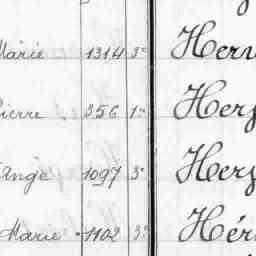 Marie 1314 3e Herv
Pierre 356 1e Herp
Ange 1097 3e Herp
Marie 1102 3e Hér